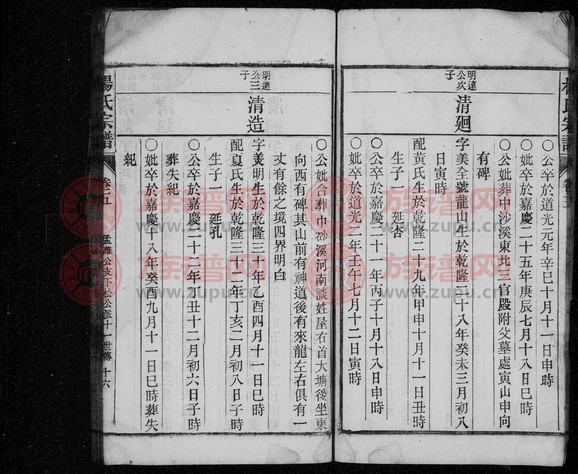 公卒於道光元年辛巳十月十一日申時
妣卒於嘉慶二十五年庚辰七月十八日巳時
公妣葬中沙溪東北三官殿附父墓處寅山申向
有碑
明遠公次子
清廻
字美全號龍山生於乾隆二十八年癸未三月初八
日寅時
配黃氏生於乾隆二十九年甲申十月十一日丑時
生子一 延杏
公卒於嘉慶二十一年丙子十月十八日寅時
妣卒於道光二年壬午七月十二日寅時
公妣合葬中砂溪河南談姓屋右首大塘後坐東
向西有碑其山前有神道後有來龍左右俱有一
丈有餘之境四界明白
明遠公三子
清造
字美明生於乾隆三十年乙酉四月十一日戌時
配夏氏生於乾隆三十二年丁亥二月初八日子時
生子一 延孔
公卒於嘉慶二十二年丁丑十二月初六日子時
葬失紀
妣卒於嘉慶十八年癸酉九月十一日巳時葬失
紀
楊氏宗譜
卷之五
十一世傳
十六
族譜网
www.zupu.cn